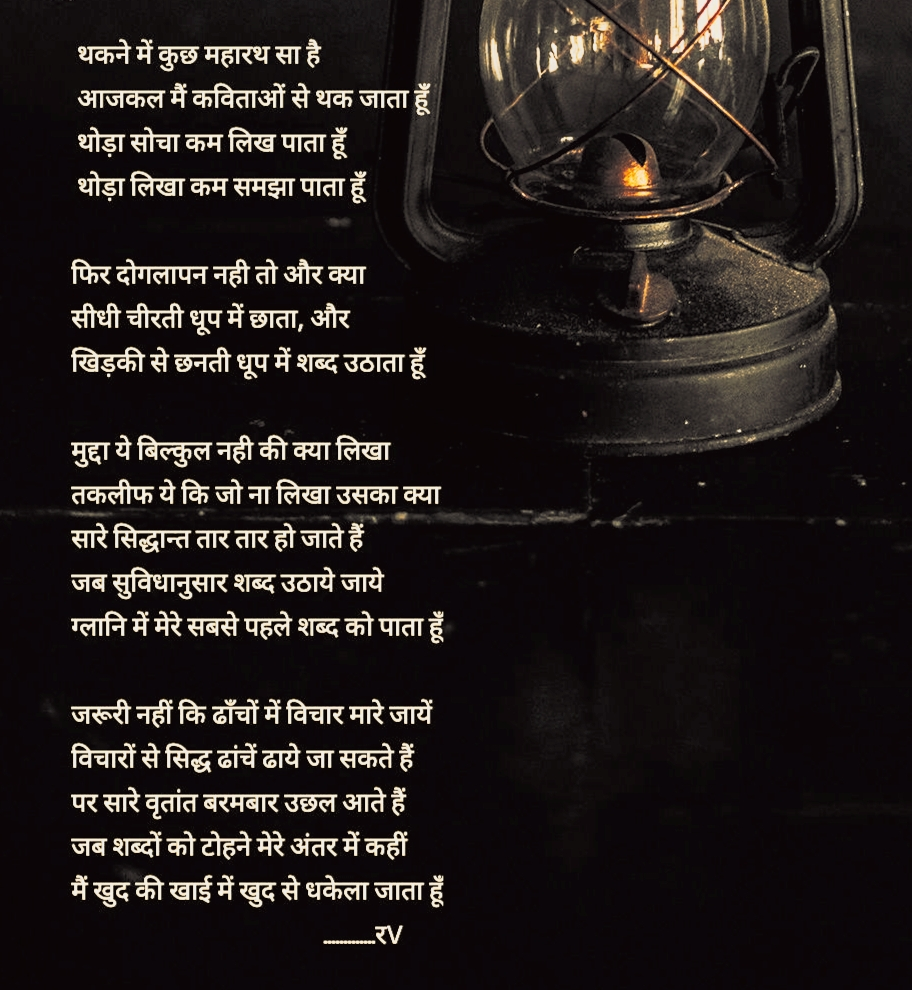 थकने में कुछ महारथ सा है
आजकल मैं कविताओं से थक जाता हूँ
थोड़ा सोचा कम लिख पाता हूँ
थोड़ा लिखा कम समझा पाता हूँ
फिर दोगलापन नही तो और क्या
सीधी चीरती धूप में छाता, और
खिड़की से छनती धूप में शब्द उठाता हूँ
मुद्दा ये बिल्कुल नही की क्या लिखा
तकलीफ ये कि जो ना लिखा उसका क्या
सारे सिद्धान्त तार तार हो जाते हैं
जब सुविधानुसार शब्द उठाये जाये
ग्लानि में मेरे सबसे पहले शब्द को पाता हूँ
जरूरी नहीं कि ढाँचों में विचार मारे जायें
विचारों से सिद्ध ढांचें ढाये जा सकते हैं
पर सारे वृतांत बरमबार उछल आते हैं
जब शब्दों को टोहने मेरे अंतर में कहीं
मैं खुद की खाई में खुद से धकेला जाता हूँ
.............रV